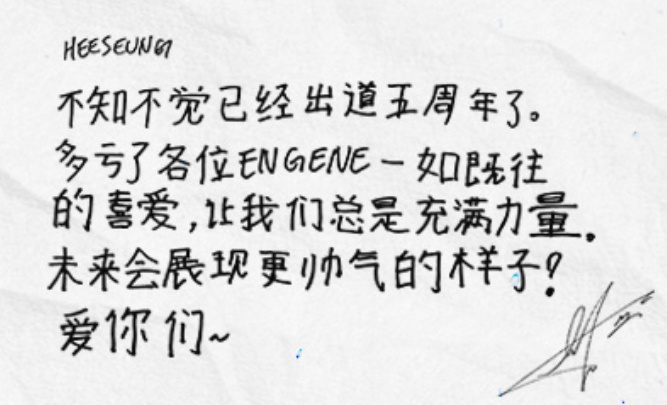 HEESEUNG
不知不觉已经出道五周年了。
多亏了各位ENGENE一如既往
的喜爱,让我们总是充满力量.
未来会展现更帅气的样子?
爱你们~